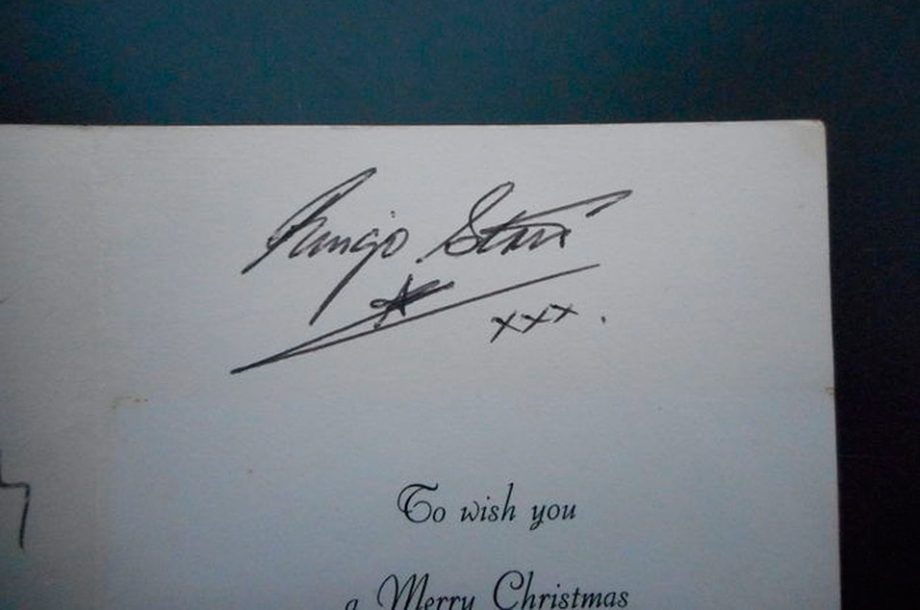 Ringo Starr
xxx.
To wish you
a Merry Christmas